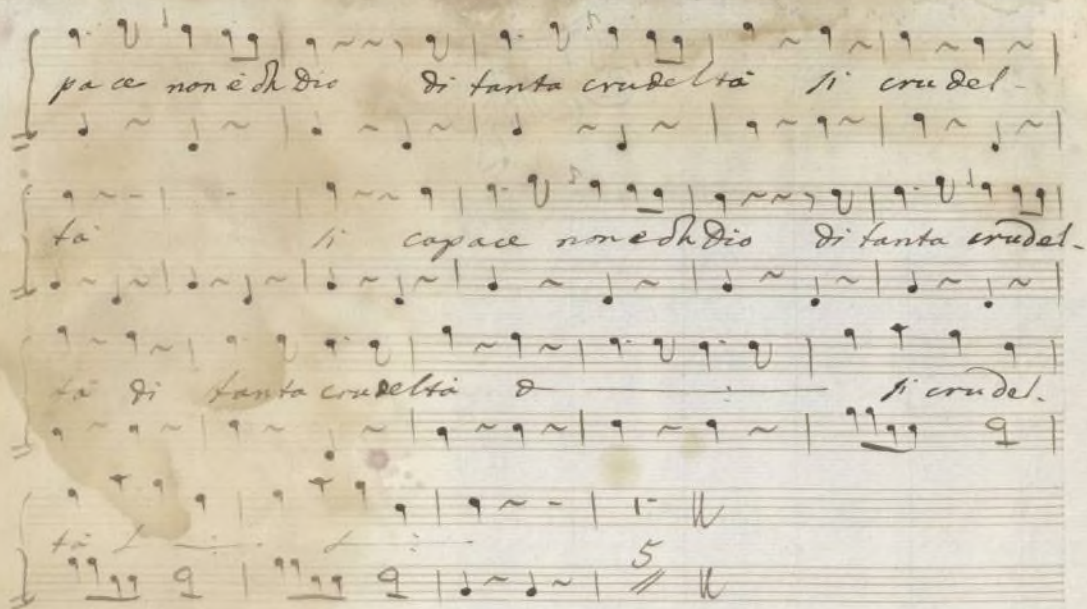 pace non è oh Dio di tanta crudeltà si crudel-
tà si capace non è oh Dio di tanta crudel-
tà di tanta crudeltà si crudel-
tà
5